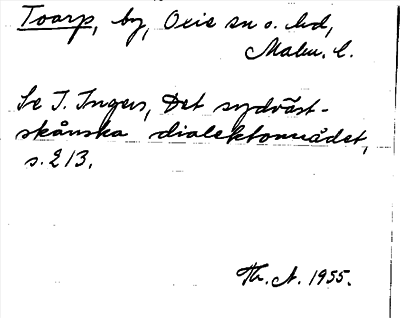 Toarp, by, Oxie sn o. hd,
Malm. l.
Se I. Ingers, Det sydväst-
skånska dialektområdet,
s. 213.
Th. A. 1955.